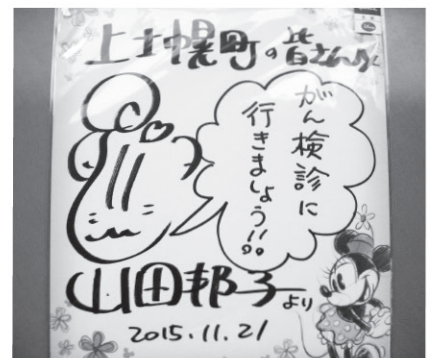 上士幌町の皆さんへ
がん検診に
行きましょう!!
山田邦子より
2015.11.21